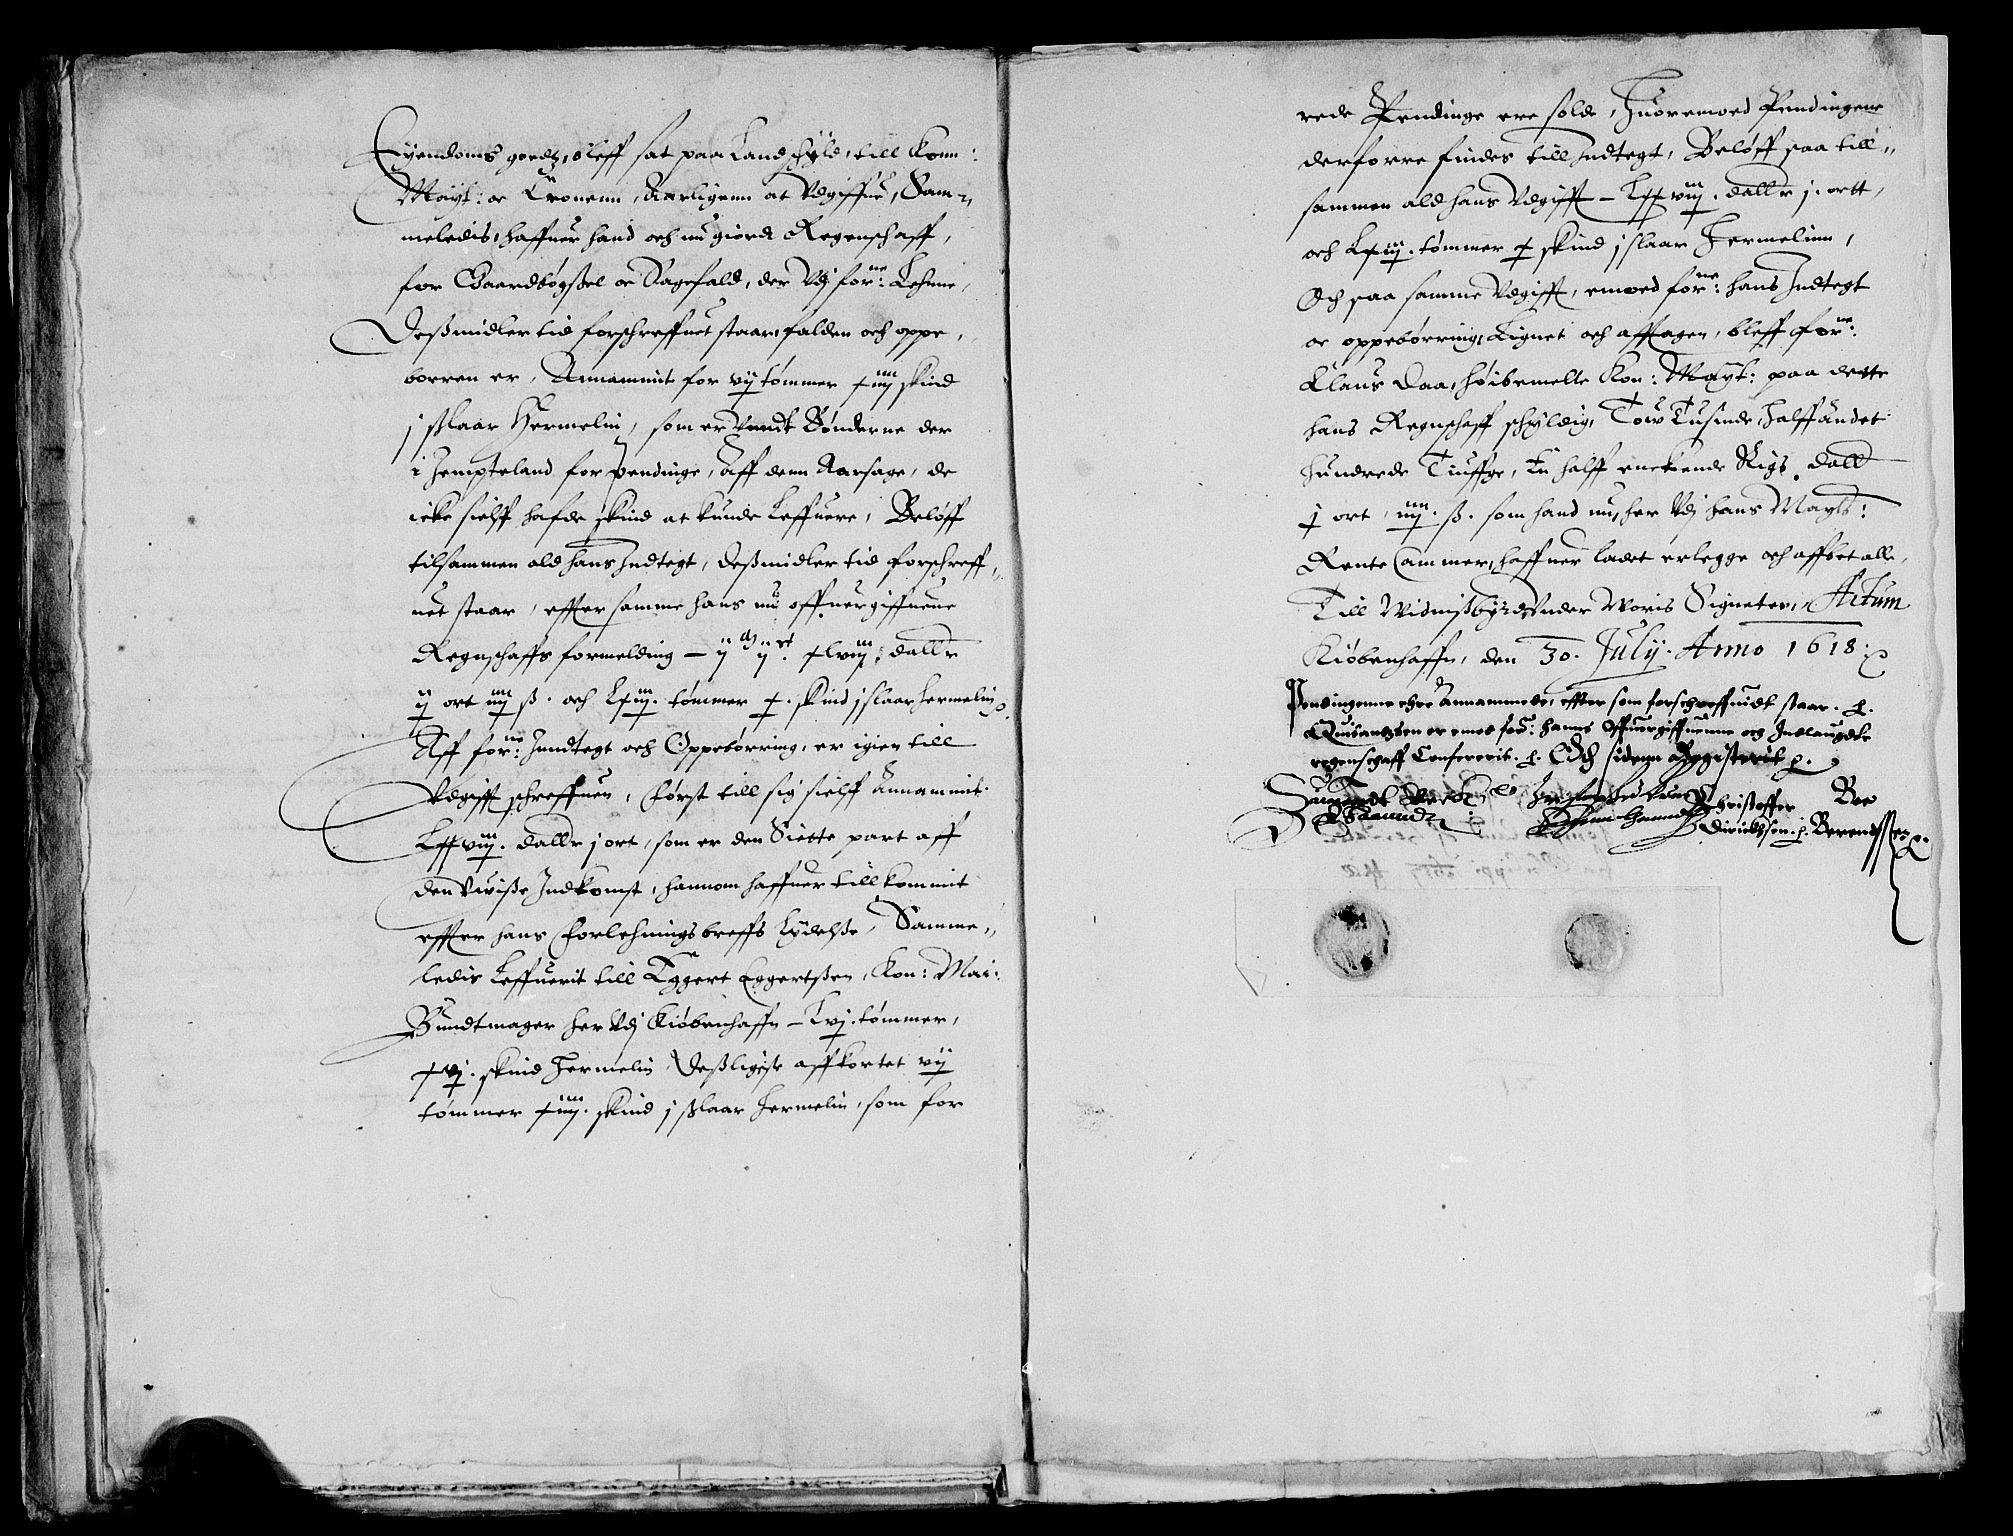 Eyendoms goedz, bleff sat paa Landschyld, till Konn:
Mayt: oc Cronenn, Aarligenn at Vdgiffue, Sam-
meledis, haffuer hand och nu giordt Regenschaff,
for Gaardbøgssel oc Sagefald, der Vdj forne: Lehnne,
Dessmidler tid forschreffuet staar, falden och oppe,
borren er, Annammit for vij tømmer xiiij skind
j sslaar Hermelin, som er Vundt Bønderne der
i Jempteland for pendinge, Aff denn Aarsage, de
icke sielff hafde skind at kunde Leffuere, Beløff
tilsammen ald hans Indtegt, Dessmidler tid forschreff,,
uet staar, effter samme hans nu offuergiffuene
Regnschaffs formelding – ij M ij ct. xlviij dallr
ij ort iiij ss. och Lxiij. tømmer x. skind j slaar hermelin
Aff forne: Indtegt och Oppebørring, er igien till
Vdgifft schreffuen, Først till sig sielff Annammit
Lxxviij. dallr j ort, som er den Siette part aff
den Uvisse Indkomst, hannom haffuer tillkommit
effter hans Forlehnings breffs Lydelsse, Samme,,
ledis Leffuerit till Eggert Eggertssen, Kon: Mai:
Bundtmager her Vdj Kiøbenhaffn – Lvj. tømmer,
xvj. skind Hermelin, Dessligeste affkortet vij
tømmer xiiij. skind j sslaar hermelin, som for
rede Pendinge ere solde, Huoremoed Pendingene
derforre findes till Indtegt, Beløff saa till,,
sammen ald hans Vdgifft – Lxxviij. dallr j. ortt,
och Lxiij. tømmer x skind j slaar Hermelinn,
Och saa samme Vdgifft, emoed forne: hans Indtegt
oc oppebørring, Lignet och afftagen, bleff forne:
Claus Daa, høibemelte Kon: Mayt: paa dette
hans Regnschaff schyldig, Tow Tusinde, Halffandet
Hundrede Tiuffge, En halff enckende Rigs. dall
j ort, iiij. ss. som hand nu, her Vdj hans Mayts:
Rente Cammer, haffuer ladet erlegge och affbetalle,
Till Widnissbyrd Vnder Woris Signeter, Actum
Kiøbenhaffn, den 30. July. Anno 1618.
Pendingenne ehre Annammede, effter som forschreffuidt staar.
Quitantzen er emod for: hanns Offuergiffuenne och Indlaugdte
regenschaff Confererit. Och sidenn Registerit
Christoffer
Dirichssen. Berendssen